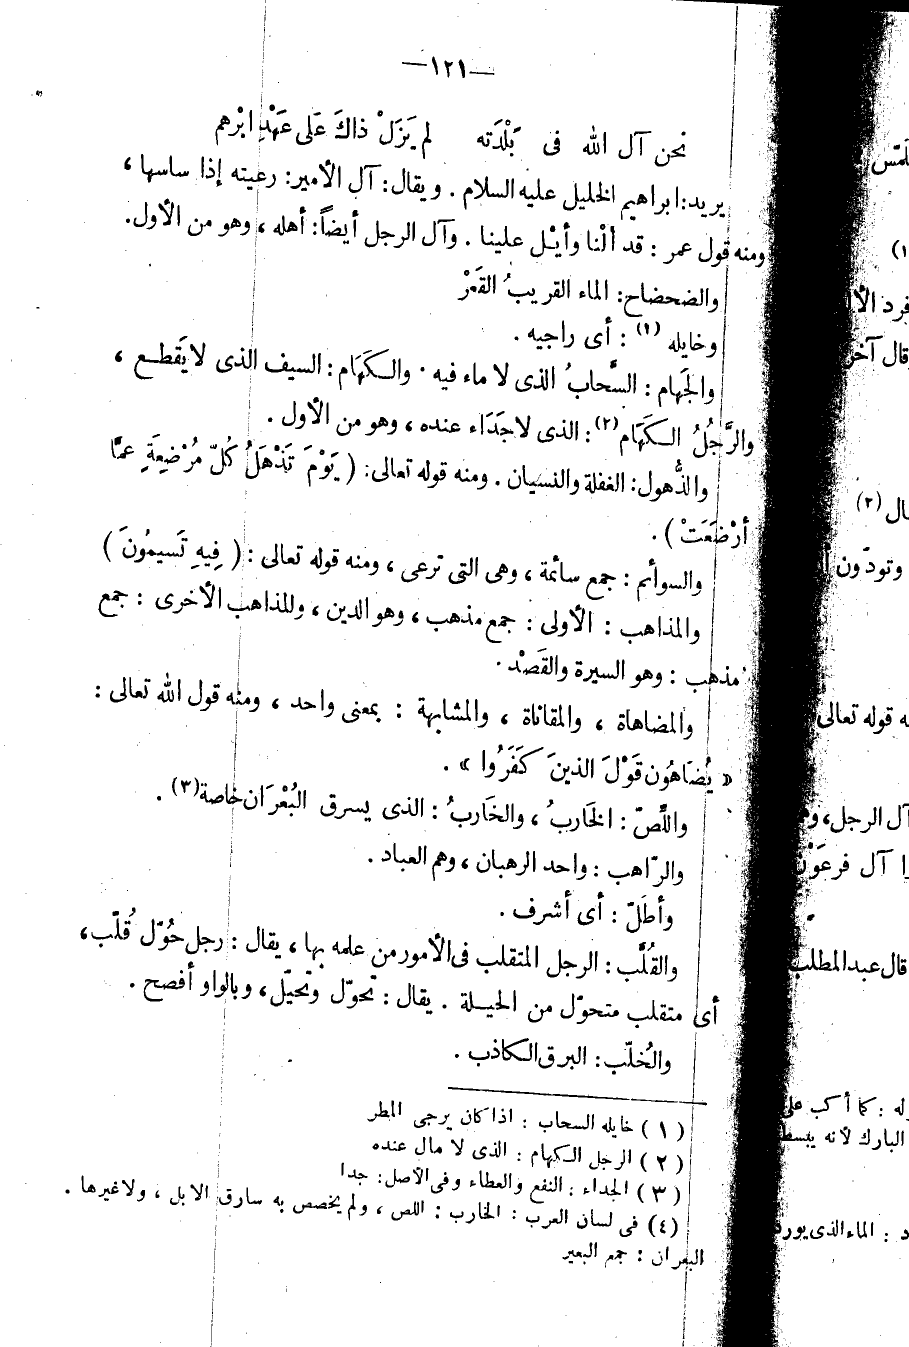 —١٢١—
نحن آل الله فى بَلْدَته لم يَزَلْ ذاكَ عَلى عَهْدِ ابْرهم
يريد: ابراهيم الخليل عليه السلام . ويقال: آل الأمير: رعيته إذا ساسها ،
ومنه قول عمر : قد ألْنا وأيْـل علينا . وآل الرجل أيضاً: أهله ، وهو من الأول.
والضحضاح: الماء القريبُ القَعْرْ
وخايله (١) : أى راجيه .
والجَهام : السَّحابُ الذى لا ماء فيه . والـكَهَام : السيف الذى لا يَقطـع ،
والرَّجُلُ الـكَهَام (٢) : الذى لا جَدَاء عنده ، وهو من الأول .
والذُّهول: الغفلة والنسيان . ومنه قوله تعالى: ( يَوْمَ تَذْهَلُ كُلّ مُرْضِعَةٍ عمَّا
أرْضَعَتْ ) .
والسوأم : جمع سائمة ، وهى التى ترعى ، ومنه قوله تعالى : ( فِيهِ تَسيمُونَ )
والمذاهب : الأولى : جمع مذهب ، وهو الدين ، وللمذاهب الأخرى : جمع
مذهب : وهو السيرة والقَصْد .
والمضاهاة ، والمقاناة ، والمشابهة : بمعنى واحد ، ومنه قول الله تعالى :
« يُضَاهُون قَوْلَ الذينَ كَفَرُوا » .
واللّصّ : الخَاربُ ، والخَاربُ : الذى يسرق البُعْرَان خاصة (٣) .
والرّاهب : واحد الرهبان ، وهم العباد .
وأطَلّ : أى أشرف .
والقُلَّب : الرجل المتقلب فى الأمور من علمه بها ، يقال : رجل حُوّل قُلّب ،
أى متقلب متحوّل من الحيـلة . يقال : تحوّل وتحيّل ، وبالواو أفصح .
والخُلّب : البرق الـكاذب .
( ١ ) خايله السحاب : اذا كان يرجى المطر
( ٢ ) الرجل الـكهام : الذى لا مال عنده
( ٣ ) الجداء : النفع والعطاء وفى الأصل: جدا
(٤) فى لسان العرب : الخارب : اللص ، ولم يخصص به سارق الابل ، ولا غيرها .
البعران : جمع البعير
(١)
قال آخر
(٢)
وتودّون
ه قوله تعالى
آل الرجل،
آل فرعَوْن
قال عبد المطلب
له : كما أكب على
البارك لأنه
د : الماء الذى